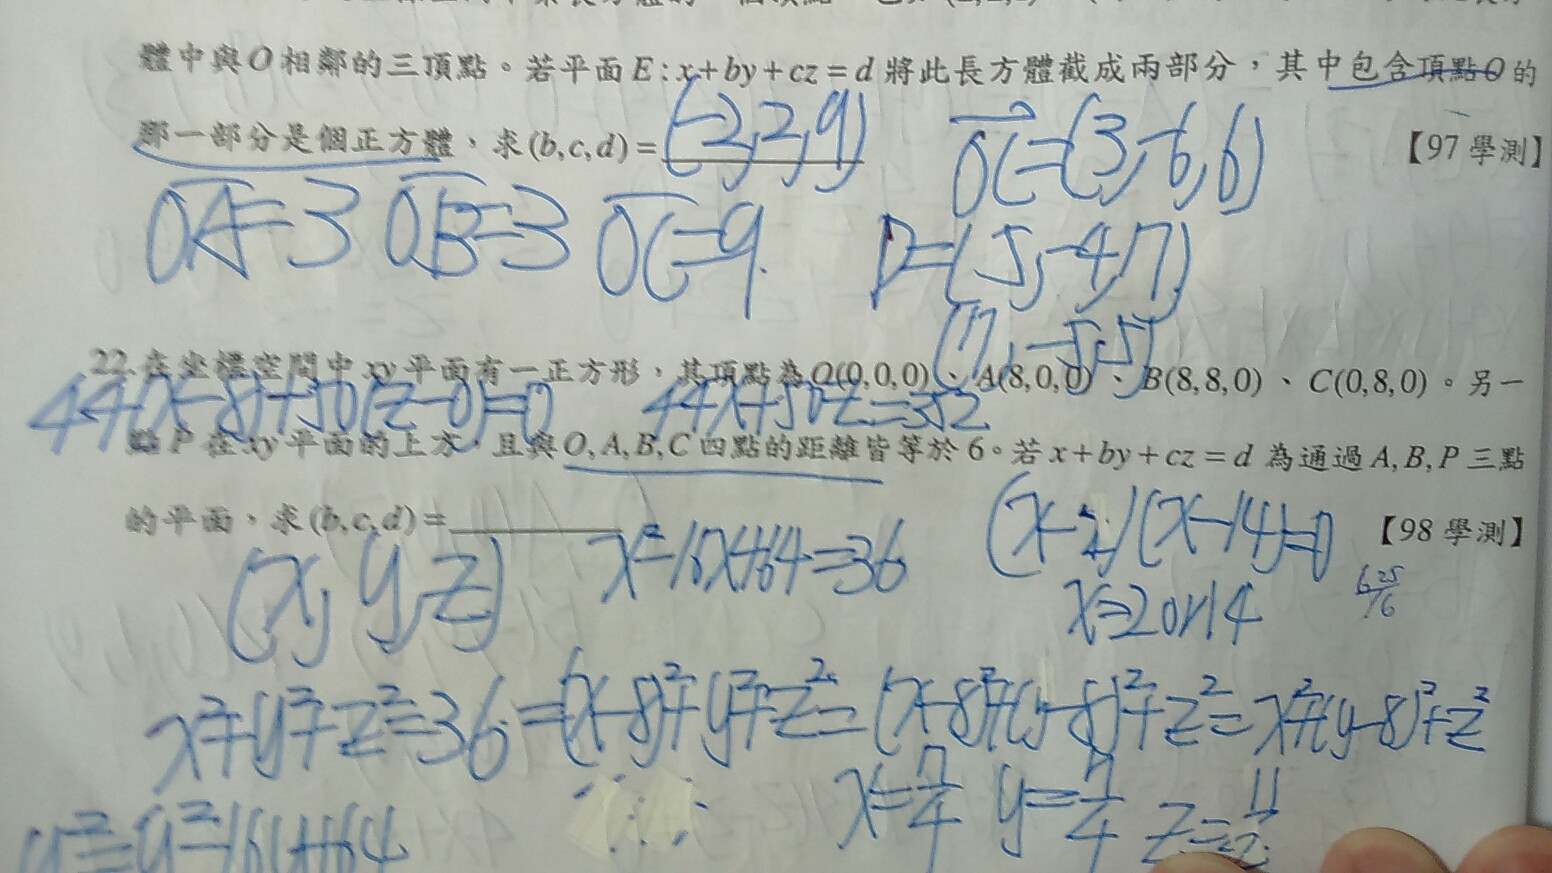 體中與O相鄰的三頂點。若平面E:x+by+cz=d將此長方體截成兩部分，其中包含頂點O的
那一部分是個正方體，求(b,c,d)=(-2,2,9) 【97學測】
OC=(3,-6,6)
OA=3 OB=3 OC=9.
D=(5,-4,7)
(7,-5,5)
22.在坐標空間中xy平面有一正方形，其頂點為O(0,0,0)、A(8,0,0)、B(8,8,0)、C(0,8,0)。另一
44(x-8)+50(z-0)=0 44x+50z=352
點P在xy平面的上方，且與O,A,B,C四點的距離皆等於6。若x+by+cz=d為通過A,B,P三點
的平面，求(b,c,d)= 【98學測】
(x,y,z) x²-16x+64=36 (x-2)(x-14)=0
x=2 or 14
x²+y²+z²=36=(x-8)²+y²+z²=(x-8)²+(y-8)²+z²=x²+(y-8)²+z²
x=7/4 y=7/4
y²=y²-16y+64